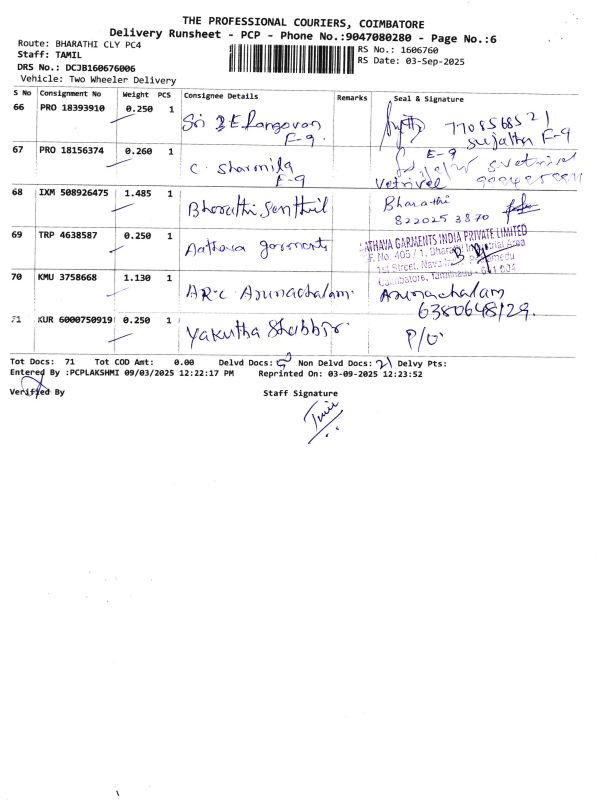 THE PROFESSIONAL COURIERS, COIMBATORE
Delivery Runsheet - PCP - Phone No.:9047080280 - Page No.:6
Route: BHARATHI CLY PC4
Staff: TAMIL
DRS No.: DCJB160676006
Vehicle: Two Wheeler Delivery
RS No.: 1606760
RS Date: 03-Sep-2025
S No Consignment No Weight PCS Consignee Details Remarks Seal & Signature
66 PRO 18393910 0.250 1 Sri E-9. 7708568521
Sujatha E-9
67 PRO 18156374 0.260 1 C. Sharmila E-9 E-9 S. Vetrivel
Vetrivel
68 IXM 508926475 1.485 1 Bharathi Senthil Bharathi
822025 3870
69 TRP 4638587 0.250 1 Aathava garments AATHAVA GARMENTS INDIA PRIVATE LIMITED
S.F. No. 405 / 1, Bharathi Industrial Area
1st Street,
Coimbatore, Tamilnadu - 641 004
70 KMU 3758668 1.130 1 AR.C. Arunachalam. Arunachalam
6380648129.
71 KUR 6000750919 0.250 1 Yakutha Shabbir. P/O.
Tot Docs: 71 Tot COD Amt: 0.00 Delvd Docs: Non Delvd Docs: Delvy Pts:
Entered By :PCPLAKSHMI 09/03/2025 12:22:17 PM Reprinted On: 03-09-2025 12:23:52
Verified By Staff Signature